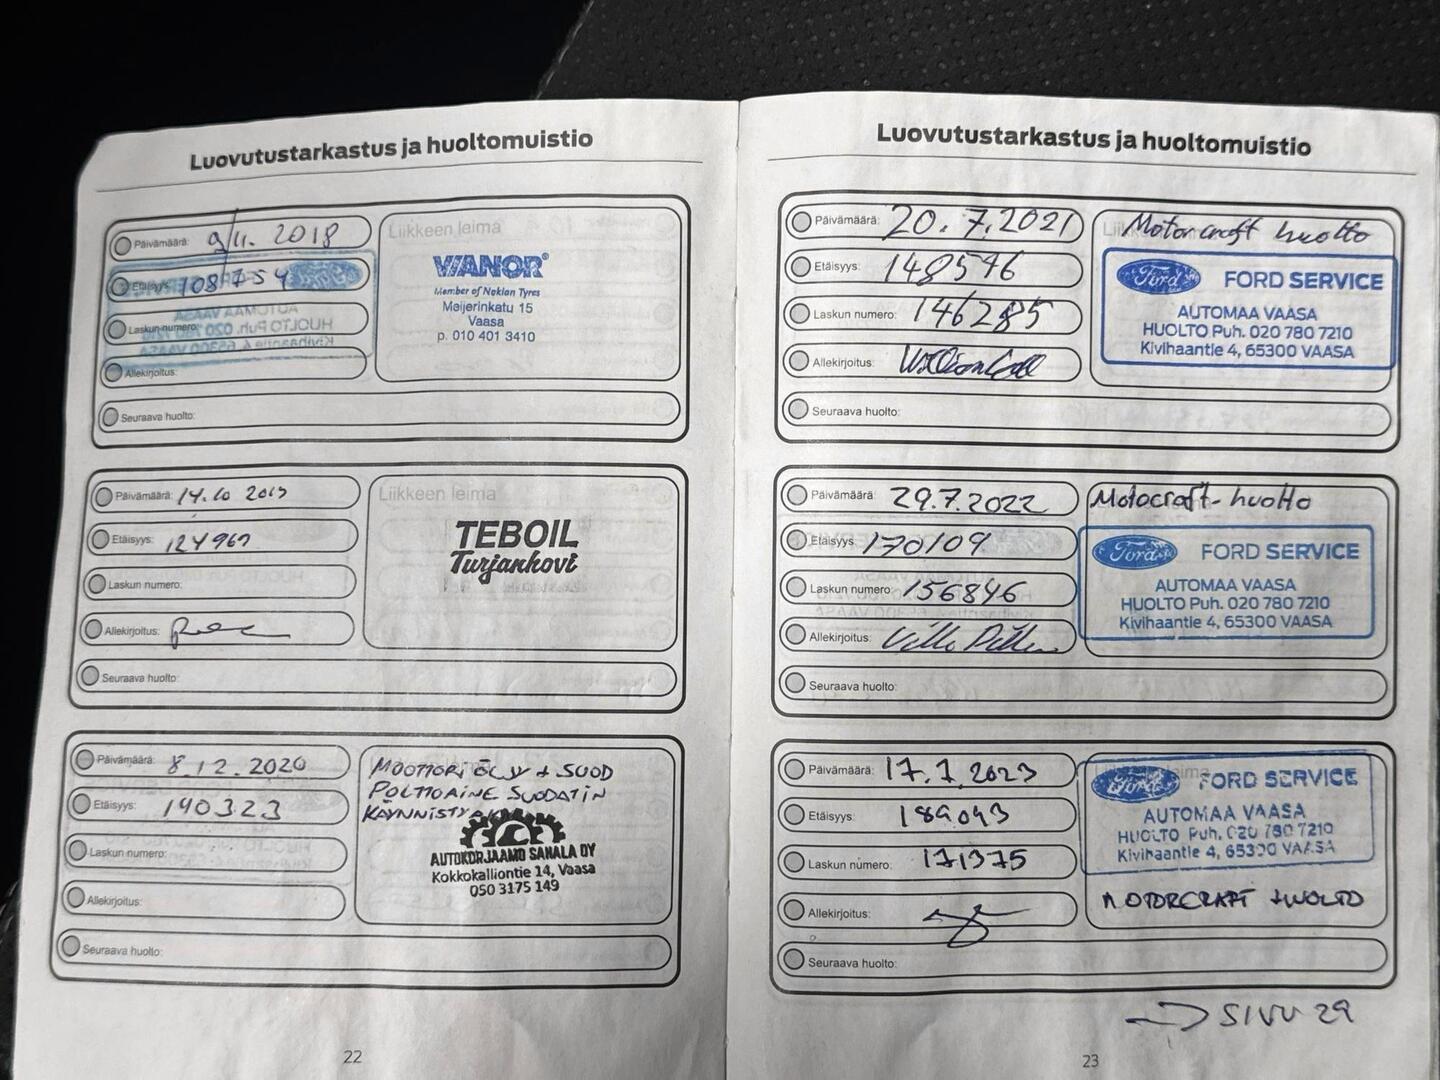 Luovutustarkastus ja huoltomuistio
Päivämäärä: 9/11. 2018
Etäisyys: 108754
Laskun numero:
Allekirjoitus:
Seuraava huolto:
Liikkeen leima
VIANOR
Member of Nokian Tyres
Meijerinkatu 15
Vaasa
p. 010 401 3410
Päivämäärä: 14.10 2019
Etäisyys: 124967
Laskun numero:
Allekirjoitus:
Seuraava huolto:
Liikkeen leima
TEBOIL
Turjankovi
Päivämäärä: 8.12.2020
Etäisyys: 140323
Laskun numero:
Allekirjoitus:
Seuraava huolto:
MOOTTORI ÖLJY + SUOD
POLTTOAINE SUODATIN
AUTOKORJAAMO SANALA OY
Kokkokalliontie 14, Vaasa
050 3175 149
22
Luovutustarkastus ja huoltomuistio
Päivämäärä: 20.7.2021
Etäisyys: 148546
Laskun numero: 146285
Allekirjoitus:
Seuraava huolto:
Motorcraft huolto
Ford FORD SERVICE
AUTOMAA VAASA
HUOLTO Puh. 020 780 7210
Kivihaantie 4, 65300 VAASA
Päivämäärä: 29.7.2022
Etäisyys: 170109
Laskun numero: 156846
Allekirjoitus:
Seuraava huolto:
Motocraft-huolto
Ford FORD SERVICE
AUTOMAA VAASA
HUOLTO Puh. 020 780 7210
Kivihaantie 4, 65300 VAASA
Päivämäärä: 17.7.2023
Etäisyys: 189043
Laskun numero: 171375
Allekirjoitus:
Seuraava huolto:
Ford FORD SERVICE
AUTOMAA VAASA
HUOLTO Puh. 020 780 7210
Kivihaantie 4, 65300 VAASA
MOTORCRAFT HUOLTO
→ SIVU 29
23